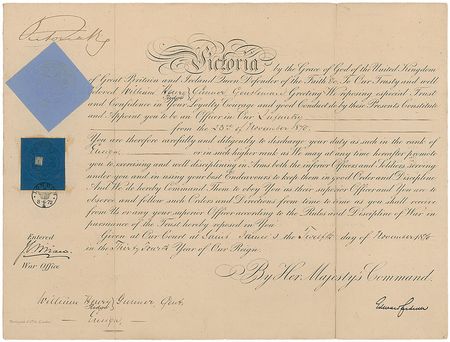 Victoria R
Victoria by the Grace of God of the United Kingdom
of Great Britain and Ireland Queen Defender of the Faith &c. To Our Trusty and well
beloved William Henry Gentleman Greeting We reposing especial Trust
and Confidence in Your Loyalty Courage and good Conduct do by these Presents Constitute
and Appoint you to be an Officer in Our Infantry
from the 23rd of November 1870.
You are therefore carefully and diligently to discharge your duty as such in the rank of
Ensign or in such higher rank as We may at any time hereafter promote
you to, exercising and well disciplining in Arms both the inferior Officers and Soldiers serving
under you and in using your best Endeavours to keep them in good Order and Discipline
And We do hereby Command them to obey You as their superior Officer and You are to
observe and follow such Orders and Directions from time to time as you shall receive
from Us or any your superior Officer according to the Rules and Discipline of War in
pursuance of the Trust hereby reposed in You.
Given at Our Court at Saint James's the day of November 1870
in the Thirty Fourth Year of Our Reign.
Entered
War Office
By Her Majesty's Command.
William Henry Gent
Ensign